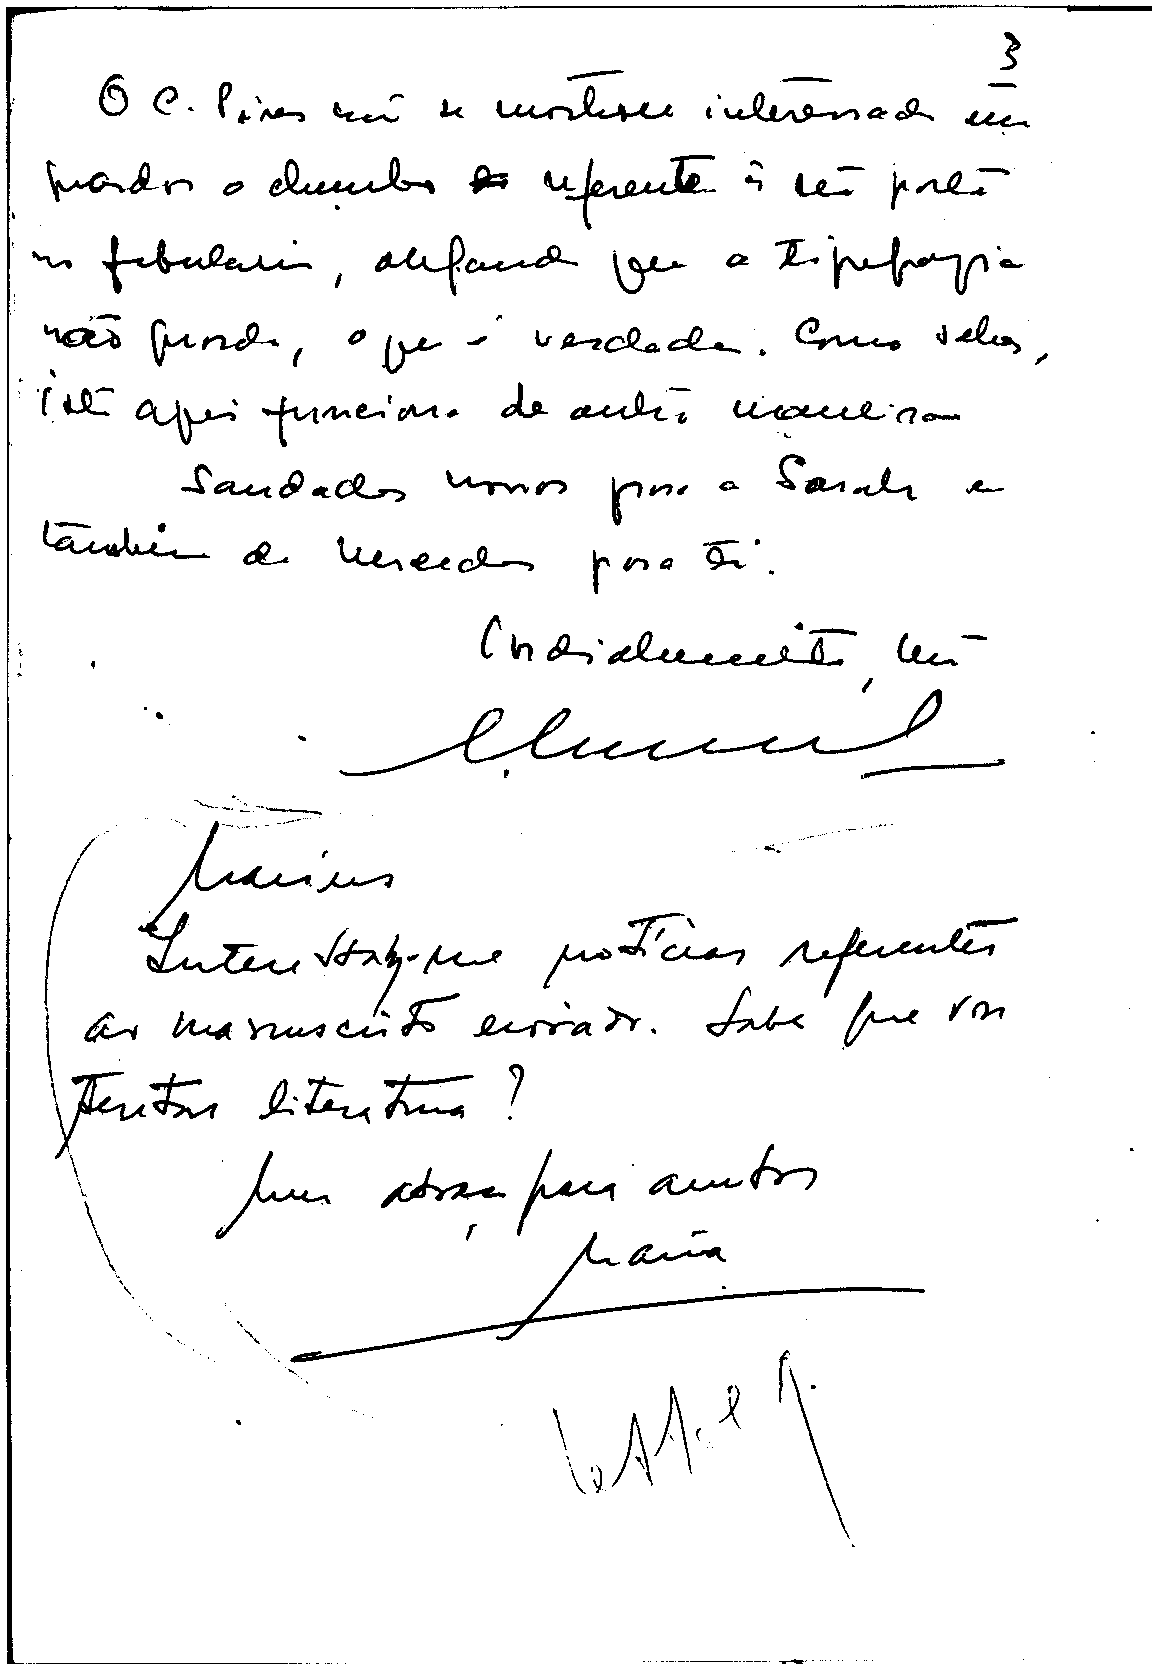 3
O C. Pires não se mostrou interessado em
guardar o chumbo referente à sua parte
no fabulário, alegando que a tipografia
não guarda, o que é verdade. Como sabes,
isto aqui funciona de outra maneira
Saudades nossas para a Sarah e
também de Mercedes para ti.
Cordialmente, teu
Marius
Interessam-me notícias referentes
ao manuscrito enviado. Sabe que vou
tentar literatura?
Um abraço para ambos
Maria